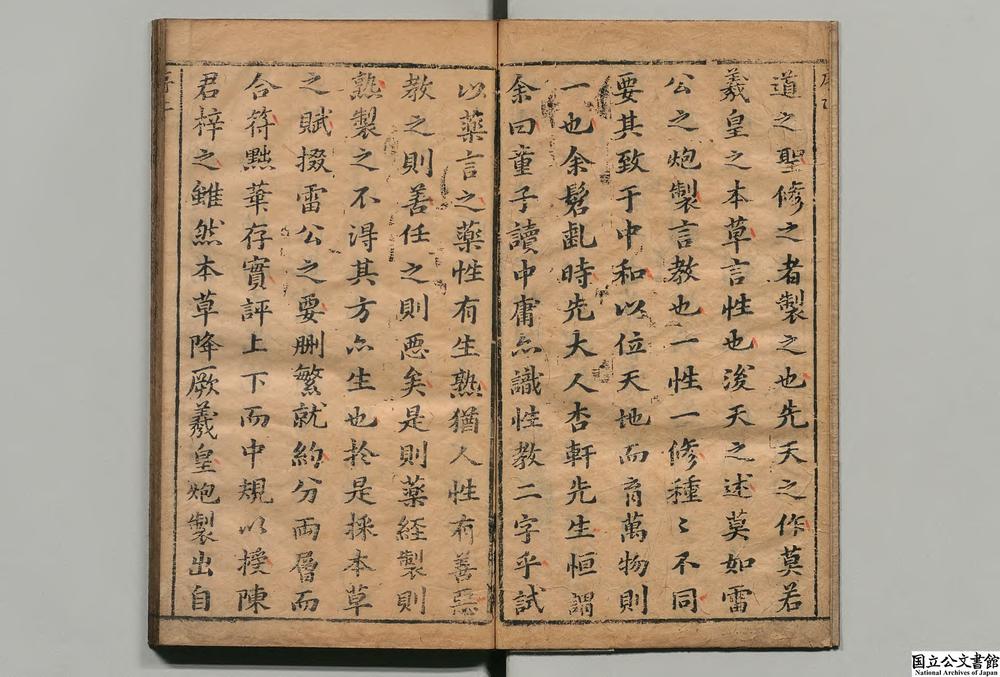 道之聖修之者製之也先天之作莫若
羲皇之本草言性也浚天之述莫如雷
公之炮製言教也一性一修種〻不同
要其致于中和以位天地而育萬物則
一也余髫齓時先大人杏軒先生恒謂
余曰童子讀中庸亦識性教二字乎試
以藥言之藥性有生熟猶人性有善惡
教之則善任之則惡矣是則藥経製則
熟製之不淂其方亦生也扵是採本草
之賦掇雷公之要刪繁就約分兩層而
合符黜華存實評上下而中規以授陳
君梓之雖然本草降厥羲皇炮製出自
国立公文書館
National Archives of Japan